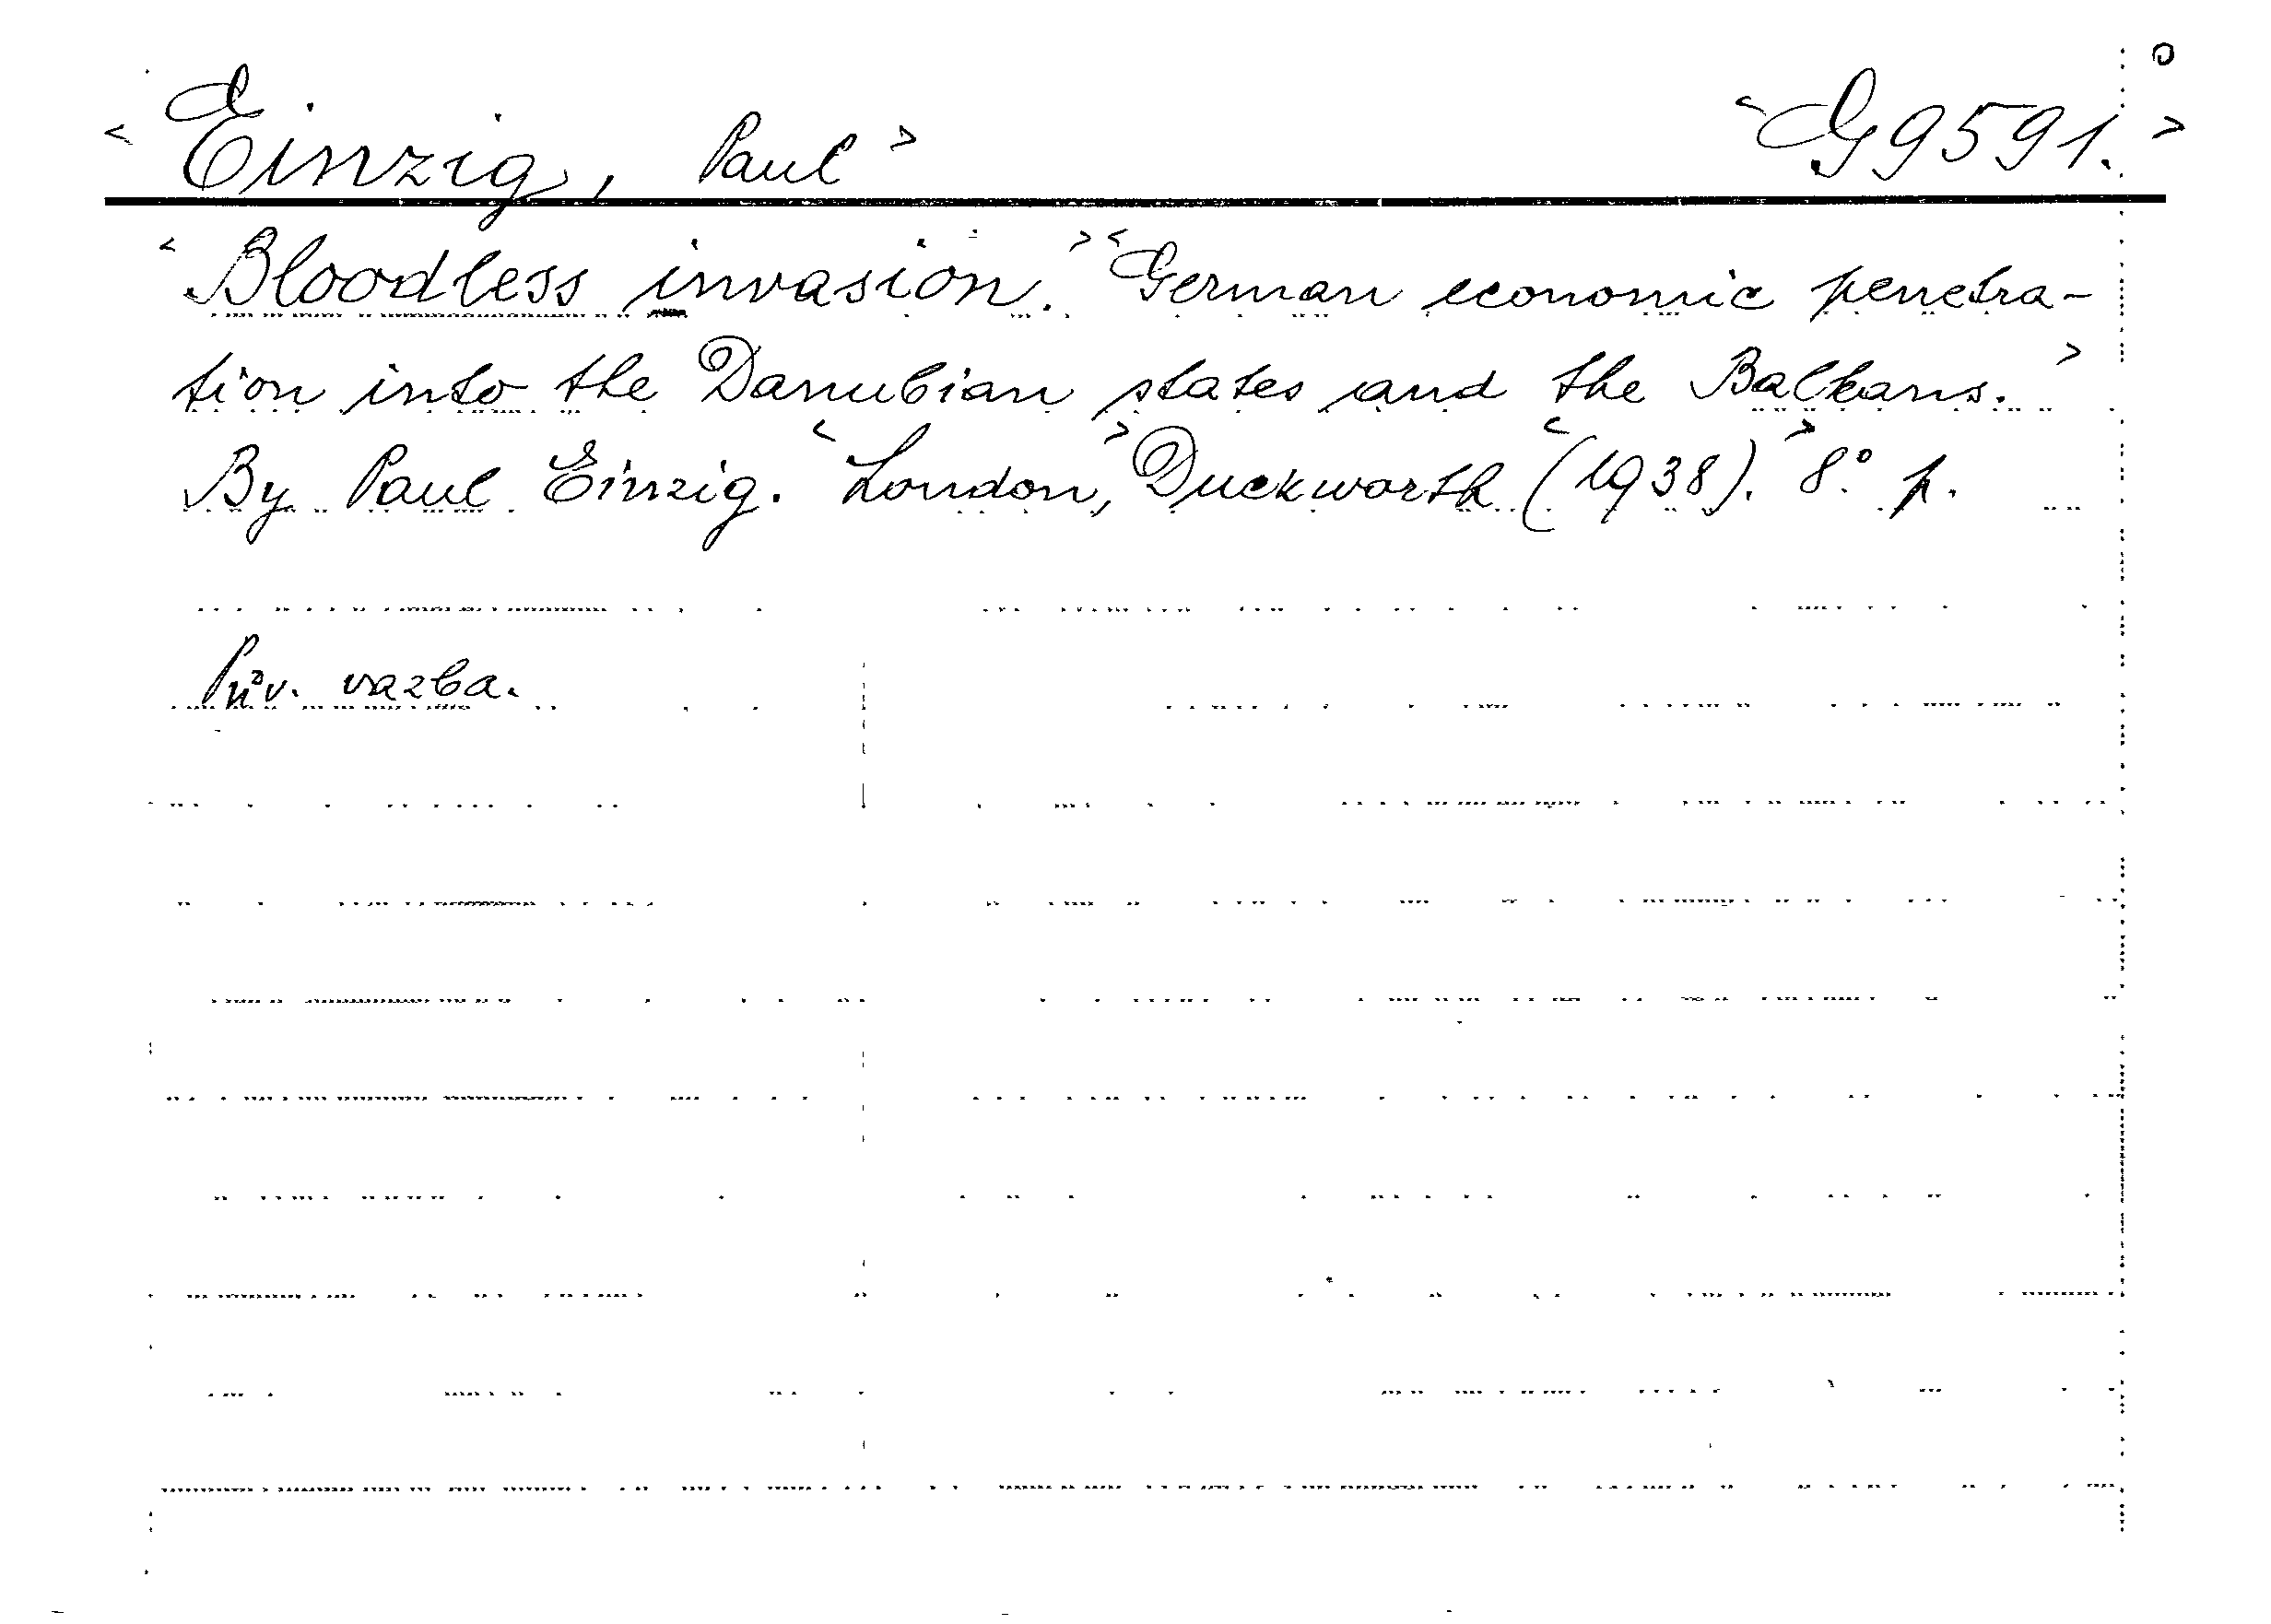 <Einzig, Paul> <G 9591.>
<Bloodless invasion.> <German economic penetra-
tion into the Danubian states and the Balkans.>
By Paul Einzig. <London,> Duckworth <(1938).> 8° p.
Pův. vazba.